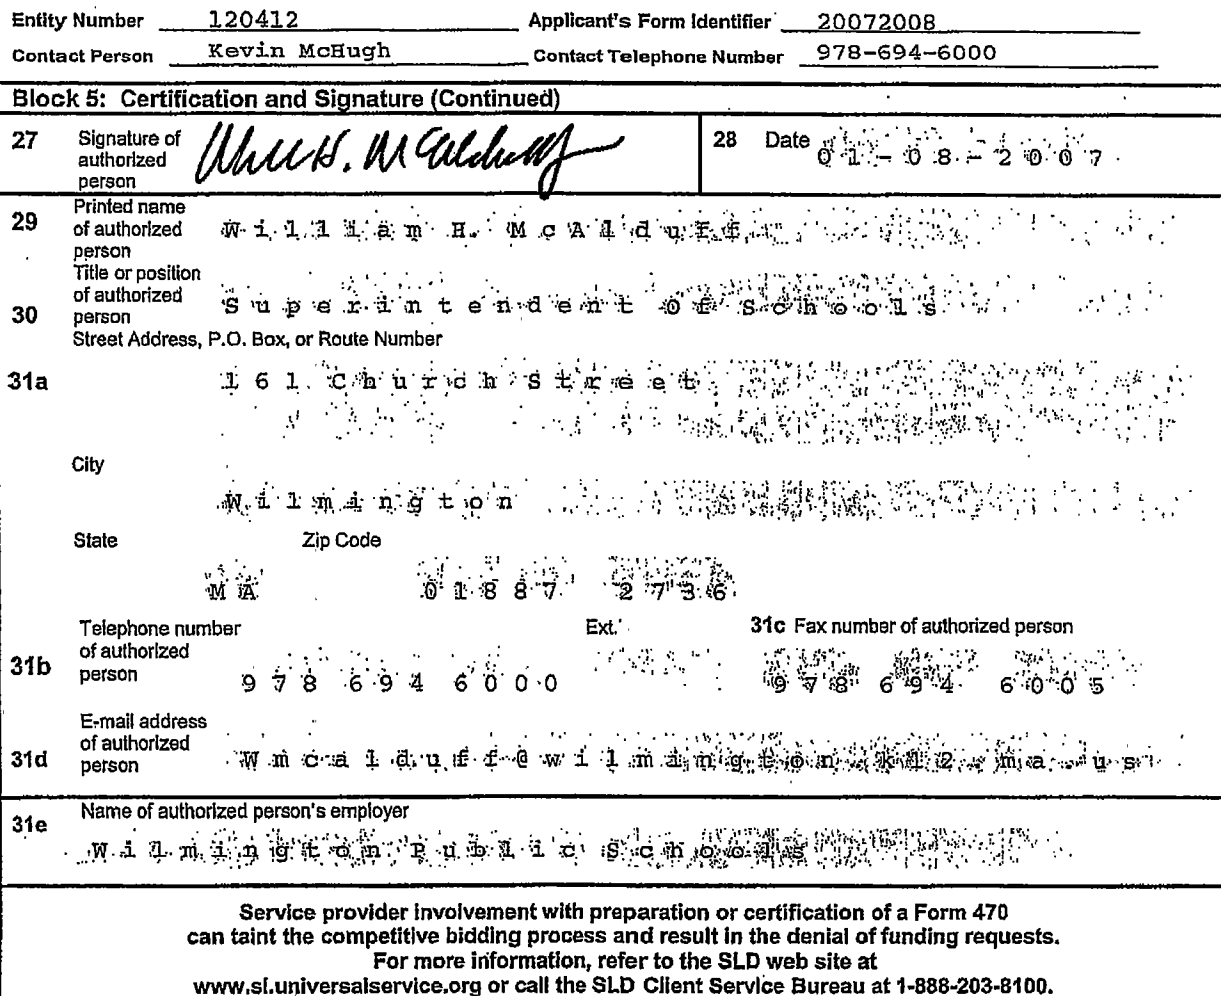 Entity Number 120412 Applicant's Form Identifier 20072008
Contact Person Kevin McHugh Contact Telephone Number 978-694-6000
Block 5: Certification and Signature (Continued)
27 Signature of authorized person William H. McAlduff 28 Date 01-08-2007
29 Printed name of authorized person William H. McAlduff
30 Title or position of authorized person Superintendent Of Schools
Street Address, P.O. Box, or Route Number
31a 161 Church Street
City
Wilmington
State Zip Code
MA 01887 2736
31b Telephone number of authorized person 978 694 6000 Ext. 31c Fax number of authorized person 978 694 6005
31d E-mail address of authorized person Wmcalduff@wilmington.k12.ma.us
31e Name of authorized person's employer
Wilmington Public Schools
Service provider involvement with preparation or certification of a Form 470
can taint the competitive bidding process and result in the denial of funding requests.
For more information, refer to the SLD web site at
www.sl.universalservice.org or call the SLD Client Service Bureau at 1-888-203-8100.